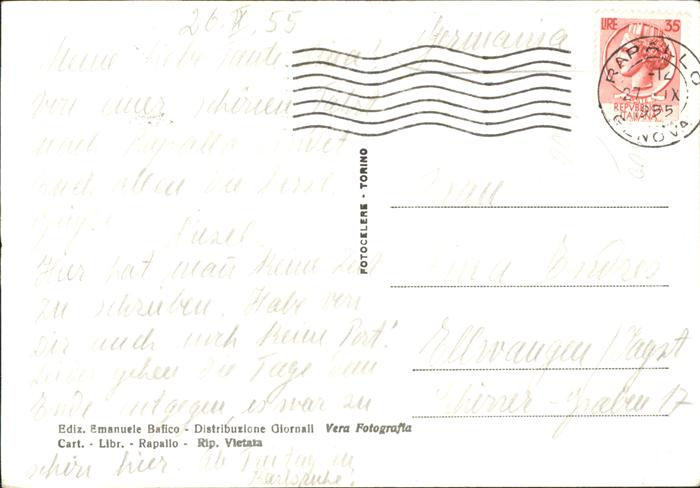 26. IX. 55
Germania
Meine liebe Tante Lina!
Von einer schönen Fahrt
nach Rapallo sendet
Euch allen die herzl.
Grüße
Hier hat man keine Zeit
zu schreiben. Habe von
Dir auch noch keine Post!
Leider gehen die Tage dem
Ende entgegen, es war zu
schön hier. Ab Freitag in
Karlsruhe!
LIRE 35
REPVBBLICA
ITALIANA
RAPALLO
27 - IX
1955
GENOVA
FOTOCELERE - TORINO
Frau
Lina Endres
Ellwangen / Jagst
Schirrer-Graben 17
Ediz. Emanuele Bafico - Distribuzione Giornali Vera Fotografia
Cart. - Libr. - Rapallo - Rip. Vietata